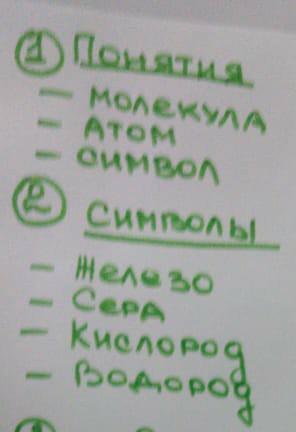 1 Понятия
- молекула
- Атом
- символ
2 Символы
- Железо
- Сера
- Кислород
- Водород